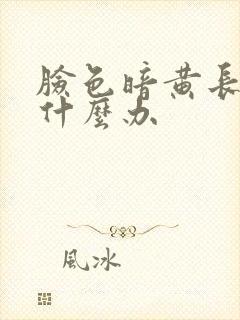 臉色暗黄長
什麼办
風冰